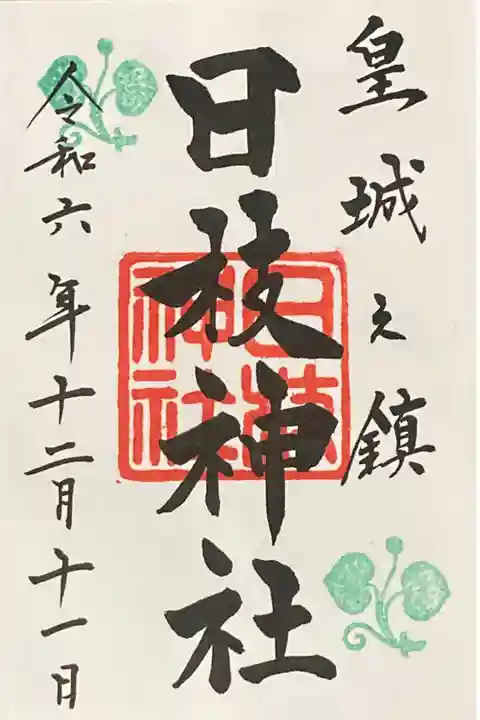 皇城之鎮
日枝神社
日枝神社
令和六年十二月十一日